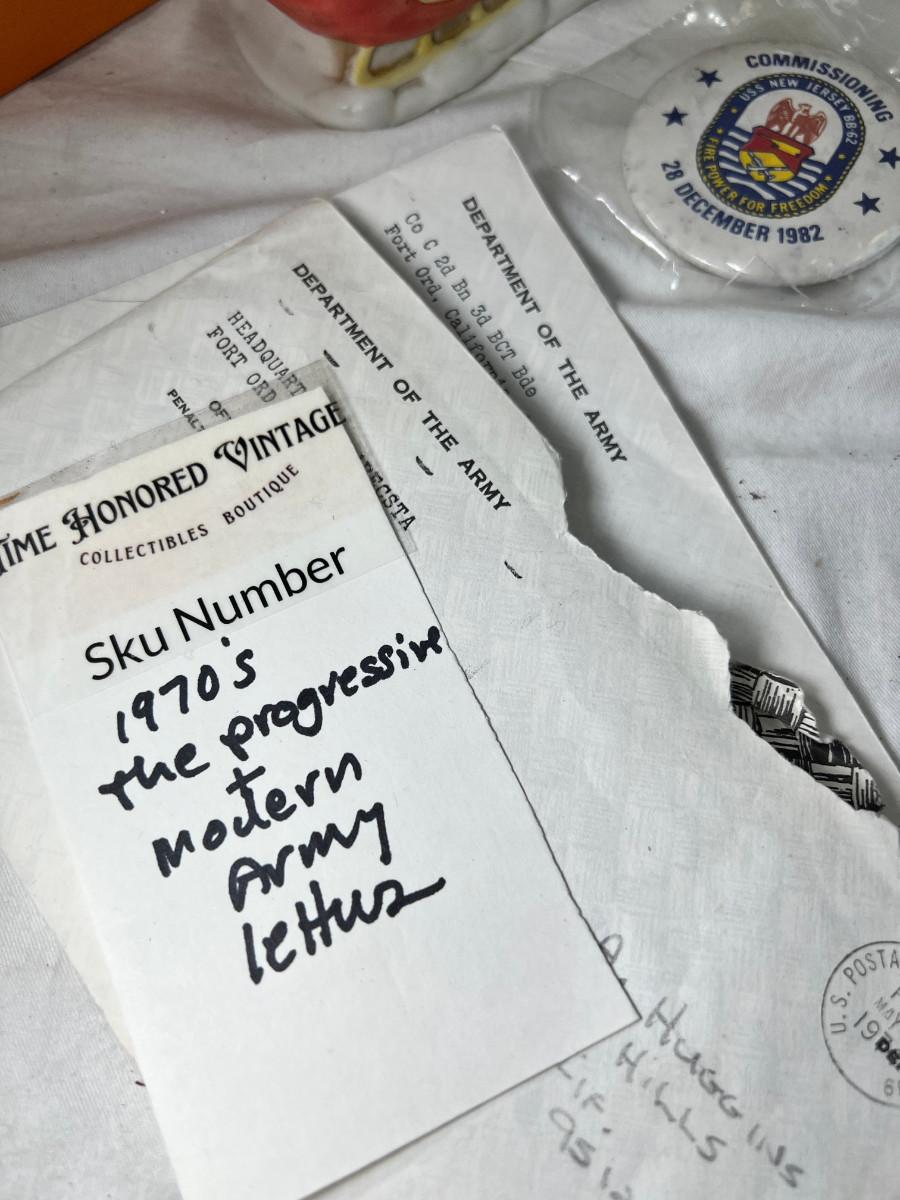 COMMISSIONING
USS NEW JERSEY BB-62
FIRE POWER FOR FREEDOM
28 DECEMBER 1982
DEPARTMENT OF THE ARMY
Co C 2d Bn 3d BCT Bde
Fort Ord, California
DEPARTMENT OF THE ARMY
HEADQUART
FORT ORD
OF
PENALT
TIME HONORED VINTAGE
COLLECTIBLES BOUTIQUE
Sku Number
1970's
the progressive
+
Modern
Army
letters
HUGGINS
HILLS
LIF.
U.S. POSTA
MAY